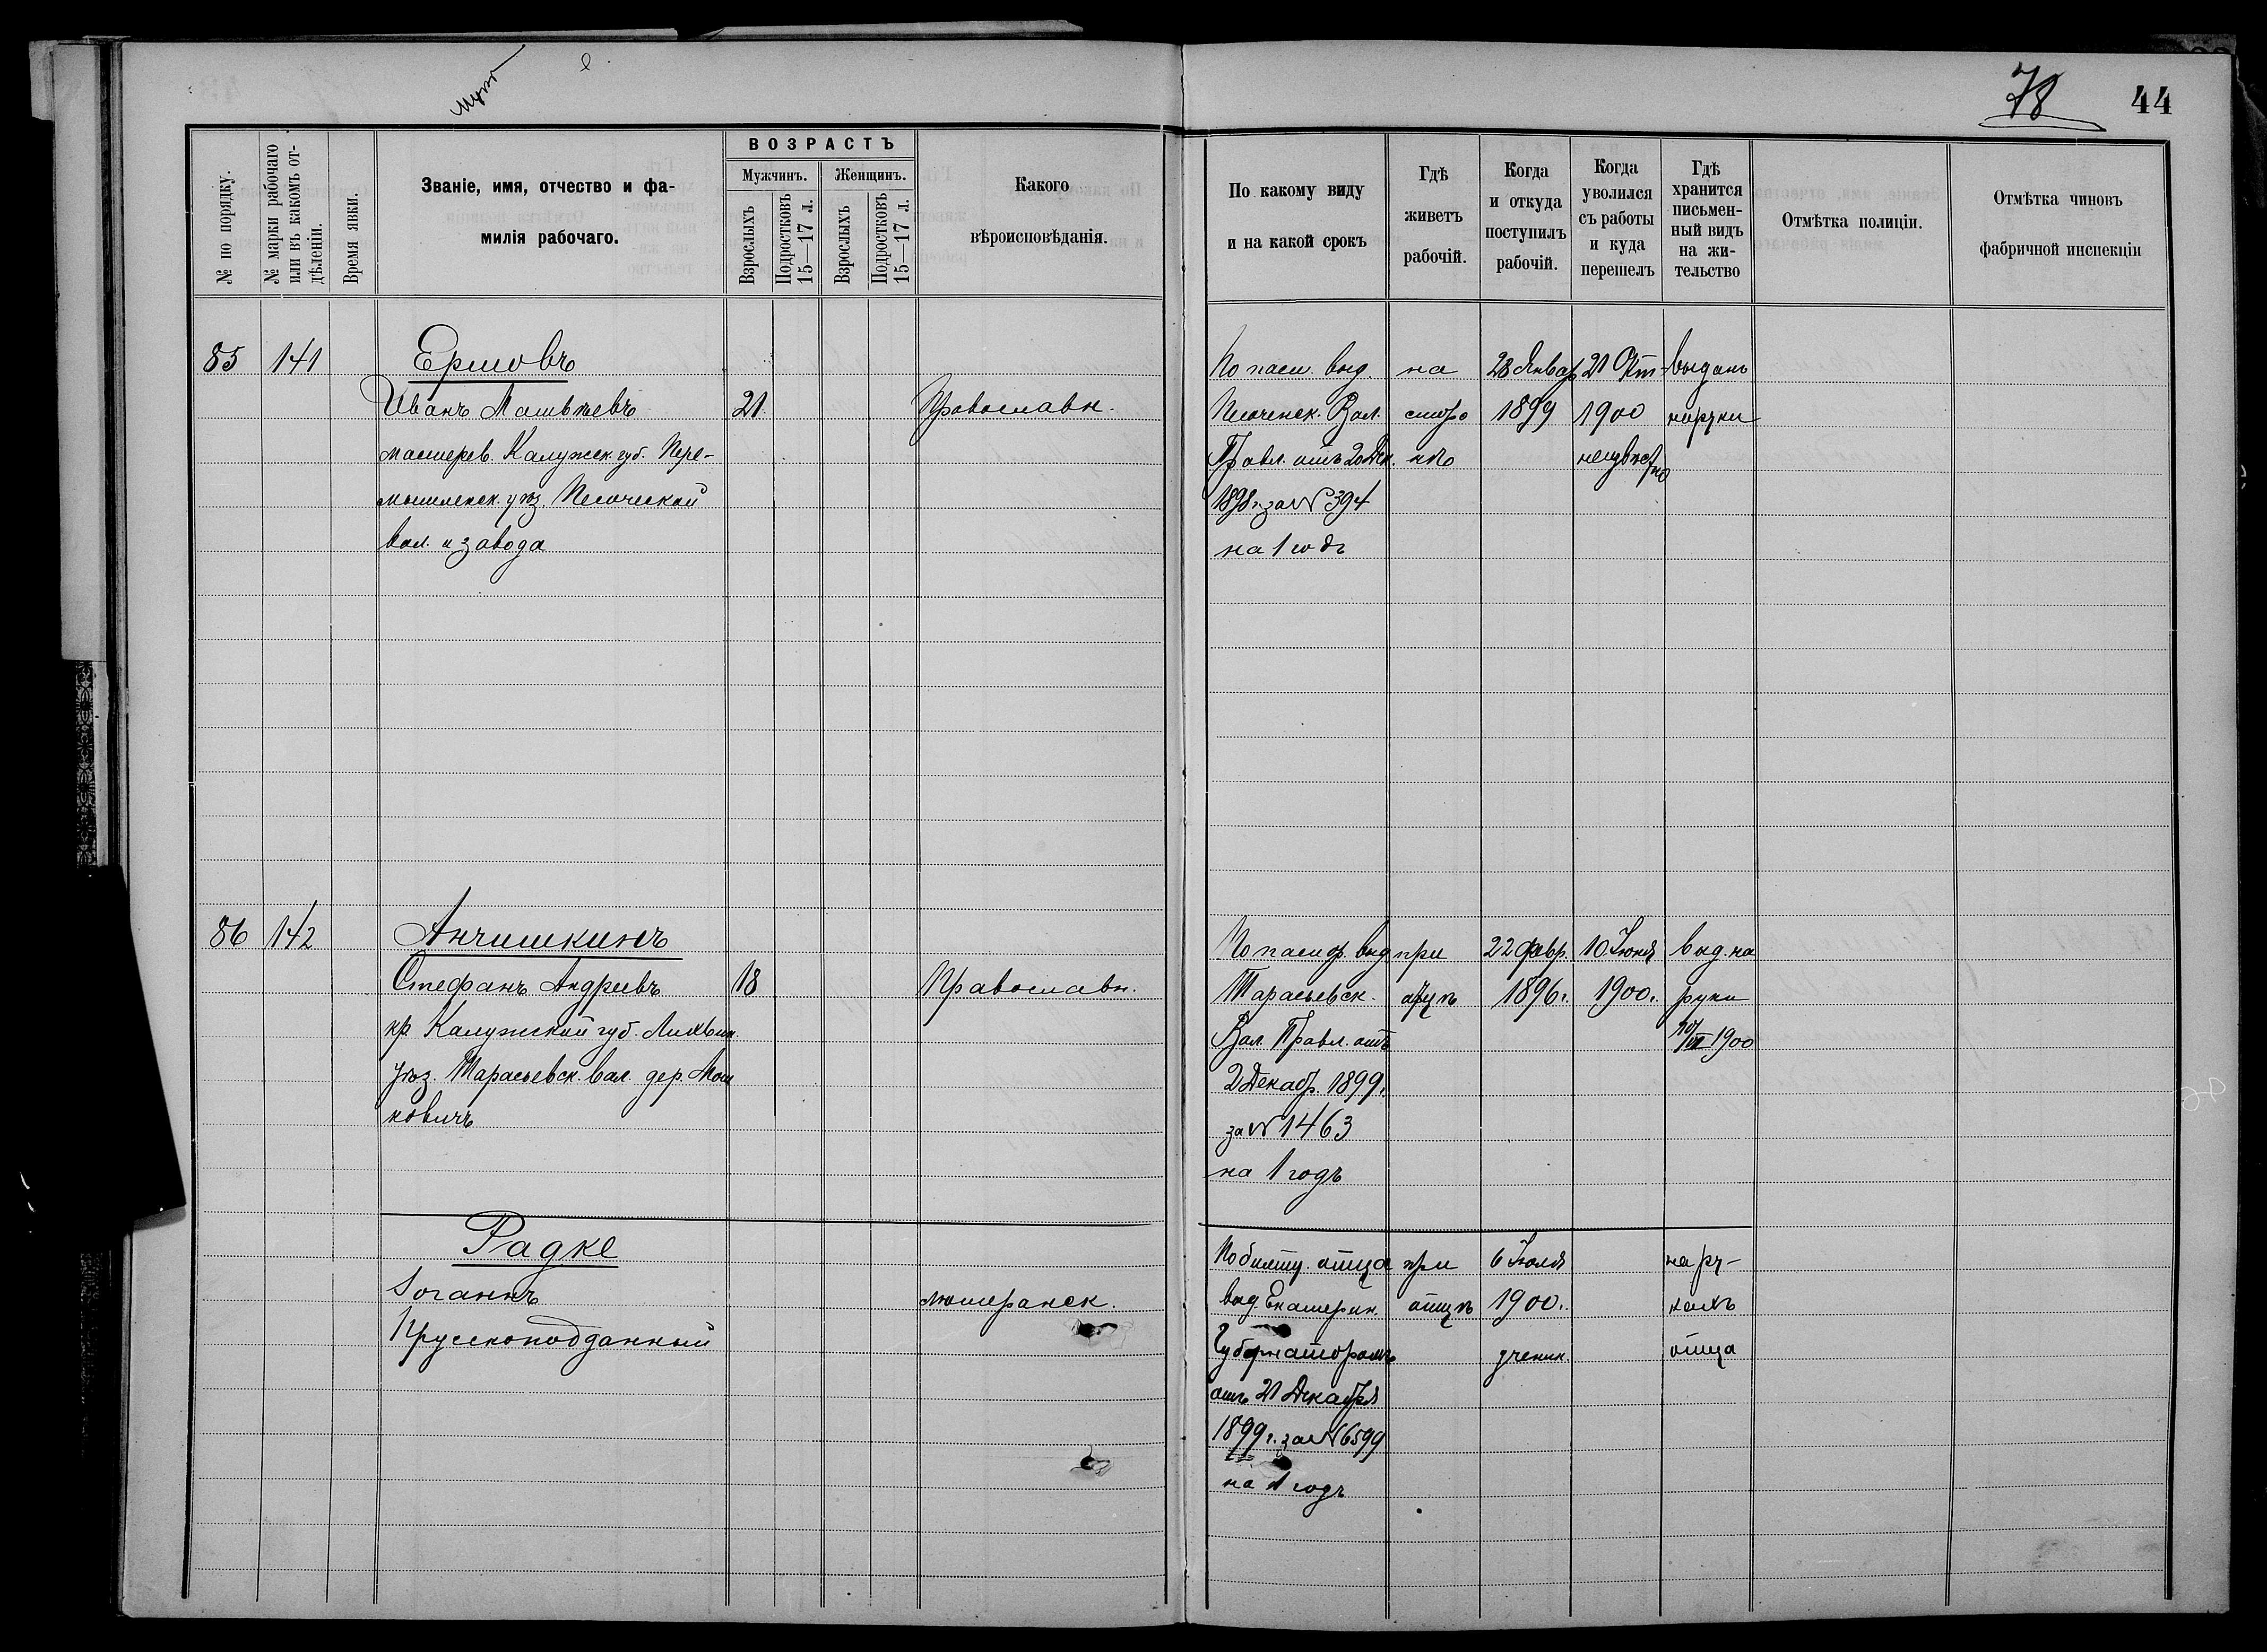 78
44
№ по порядку.
№ марки рабочаго
или въ какомъ от-
дѣленіи.
Время явки.
Званіе, имя, отчество и фа-
милія рабочаго.
ВОЗРАСТЪ
Мужчинъ.
Женщинъ.
Взрослыхъ
Подростковъ
15—17 л.
Взрослыхъ
Подростковъ
15—17 л.
Какого
вѣроисповѣданія.
По какому виду
и на какой срокъ
Гдѣ
живетъ
рабочій.
Когда
и откуда
поступилъ
рабочій.
Когда
уволился
съ работы
и куда
перешелъ
Гдѣ
хранится
письмен-
ный видъ
на жи-
тельство
Отмѣтка полиціи.
Отмѣтка чиновъ
фабричной инспекціи
85 141
Ершовъ
Иванъ Матвѣевъ
мастеров. Калужск. губ. Пере-
мышленск. уѣз. Песоческой
вол. и завода
21.
Православн.
По пасп. выд.
Песоченск. Вол.
Правл. отъ 20 Дек.
1898 г. за № 394
на 1 годъ
на
сторо
нѣ
28 Январ
1899
21 Окт
1900
неизвѣстно
выданъ
на руки
86 142
Анчишкинъ
Стефанъ Андреевъ
кр. Калужской губ. Лихвин.
уѣз. Тарасьевск. вол. дер. Мош
ковичъ
18
Православн.
По паспор. выд
Тарасьевск.
Вол. Правл. отъ
2 Декабр. 1899 г.
за № 1463
на 1 годъ
при
отцѣ
22 февр.
1896 г.
10 Іюня
1900 г.
выд. на
руки
10/VI 1900
Радке
Іоганнъ
Прусскоподданный
лютеранск.
По билету отца
выд. Екатерин.
Губернаторомъ
отъ 21 Декабря
1899 г. за № 6599
на 1 годъ
при
отцѣ
6 Іюля
1900 г.
ученик.
на ру-
кахъ
отца